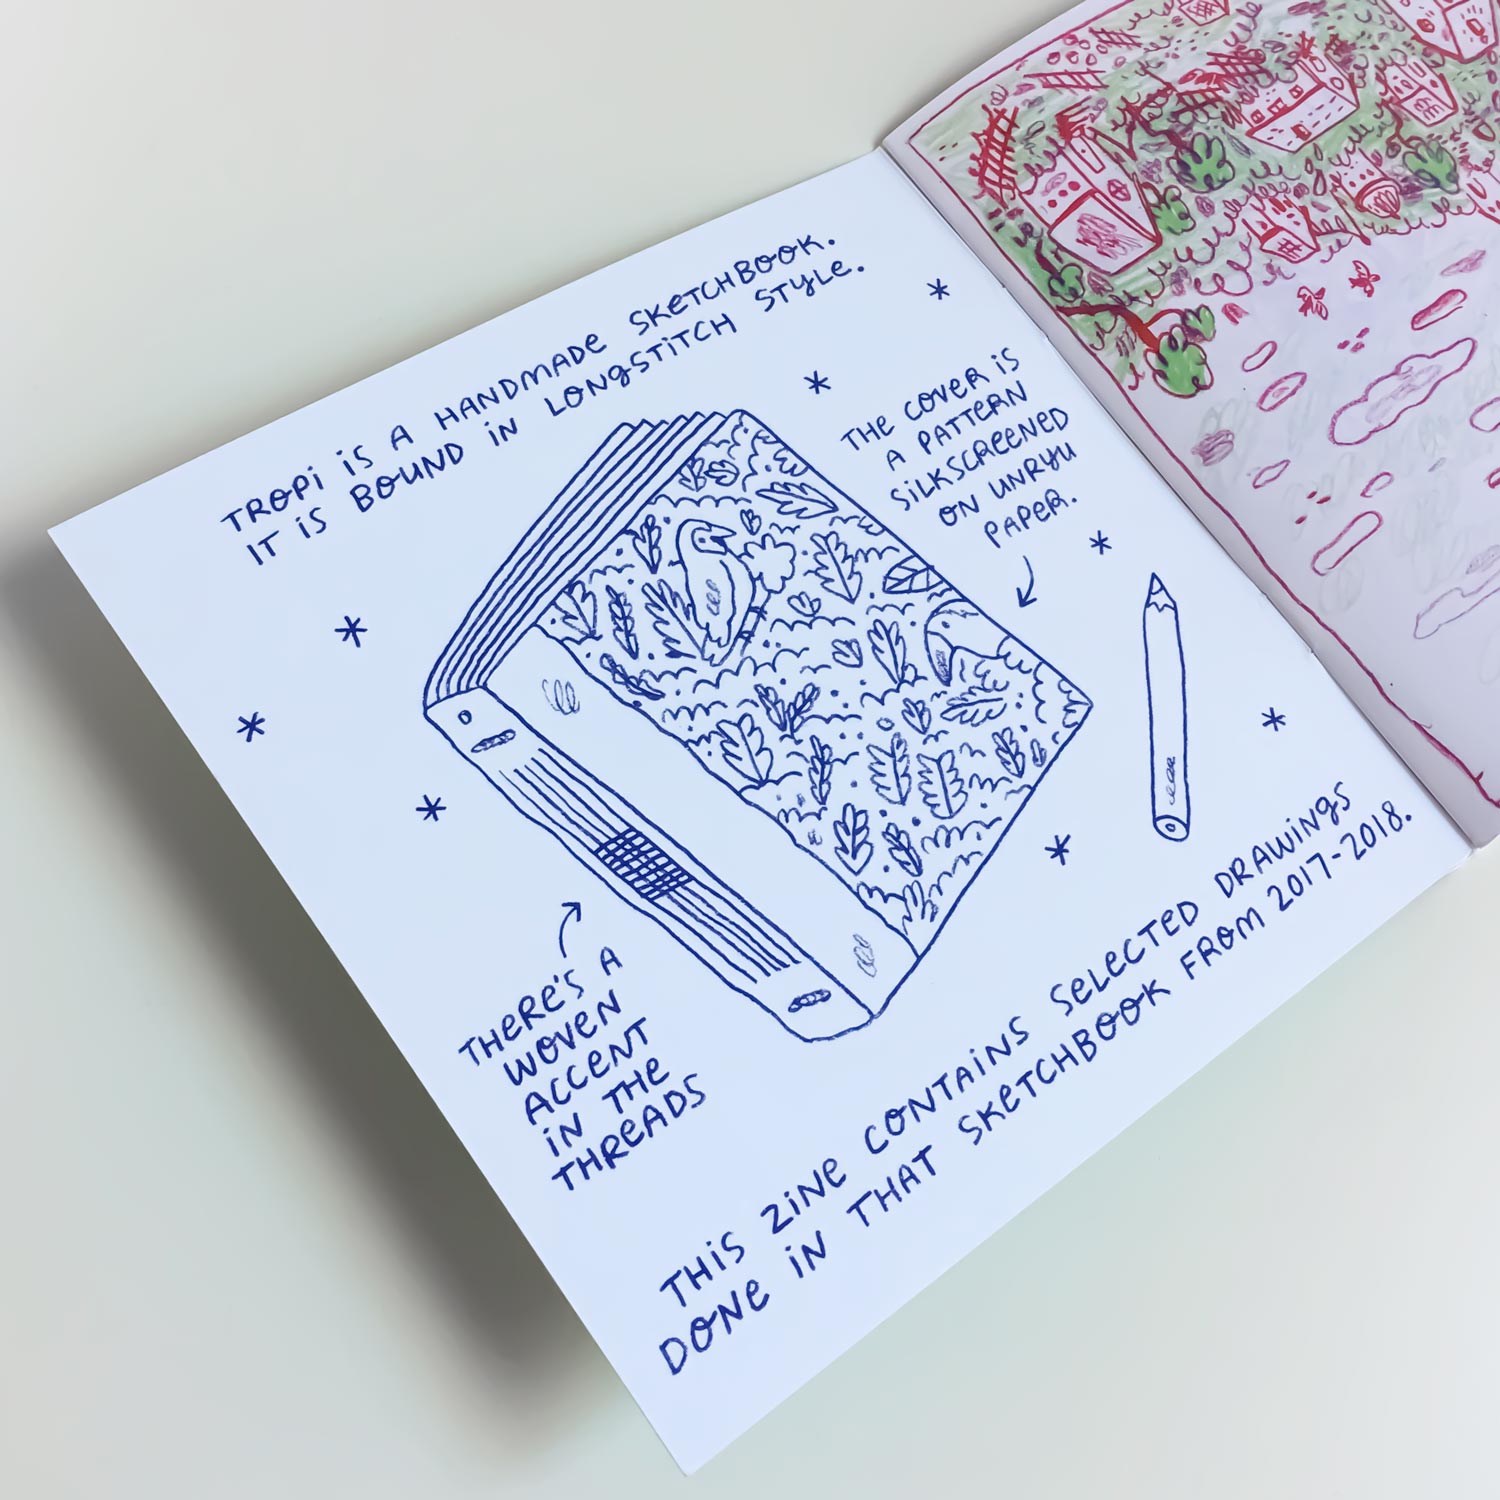 TROPI IS A HANDMADE SKETCHBOOK.
IT IS BOUND IN LONGSTITCH STYLE.
THE COVER IS
A PATTERN
SILKSCREENED
ON UNRYU
PAPER.
THERE'S A
WOVEN
ACCENT
IN THE
THREADS
THIS ZINE CONTAINS SELECTED DRAWINGS
DONE IN THAT SKETCHBOOK FROM 2017-2018.